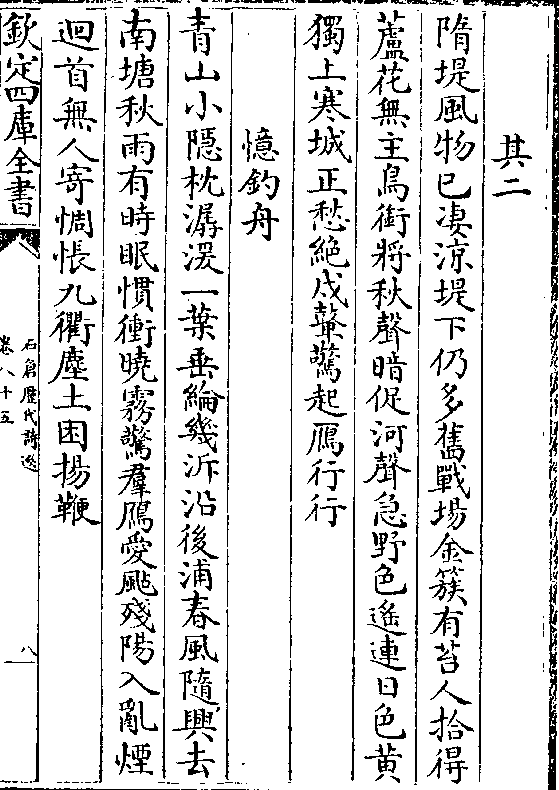 其二
隋堤風物已凄涼堤下仍多舊戰場金簇有苔人拾得
蘆花無主鳥銜將秋聲暗促河聲急野色遙連日色黄
獨上寒城正愁絶戍鼙驚起鴈行行
憶釣舟
青山小隱枕潺湲一葉垂綸幾泝沿後浦春風隨興去
南塘秋雨有時眠慣衝曉霧驚羣鴈愛飐殘陽入亂煙
迴首無人寄惆悵九衢塵土困揚鞭
欽定四庫全書
石倉歷代詩選
卷八十五
八